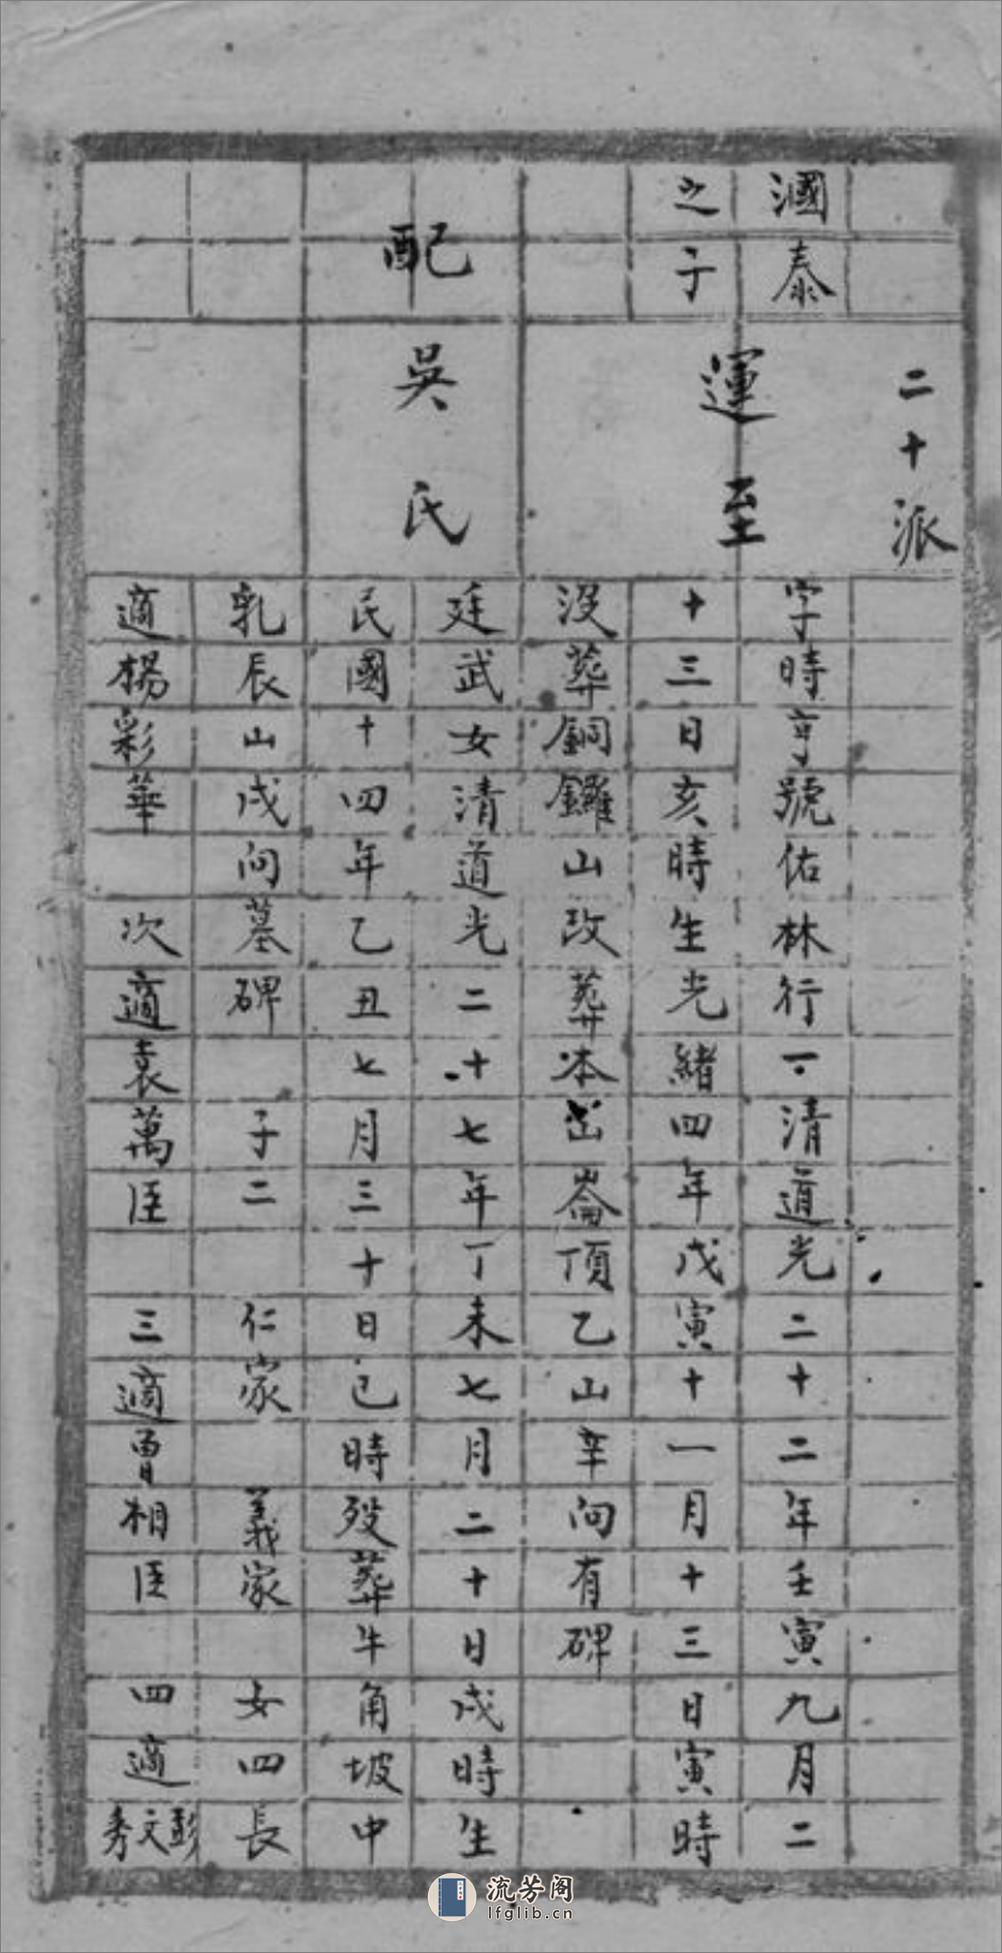 二十派
漍泰
之子
運至
字時亨號佑林行一清道光二十二年壬寅九月二
十三日亥時生光緒四年戊寅十一月十三日寅時
沒葬銅鑼山改葬本嵒崙頂乙山辛向有碑
配
吳氏
廷武女清道光二十七年丁未七月二十日戌時生
民國十四年乙丑七月三十日己時歿葬牛角坡中
乳辰山戌向墓碑 子二 仁家 義家 女四 長
適楊彩華 次適袁萬臣 三適曾相臣 四適彭文秀
流芳阁
lfglib.cn